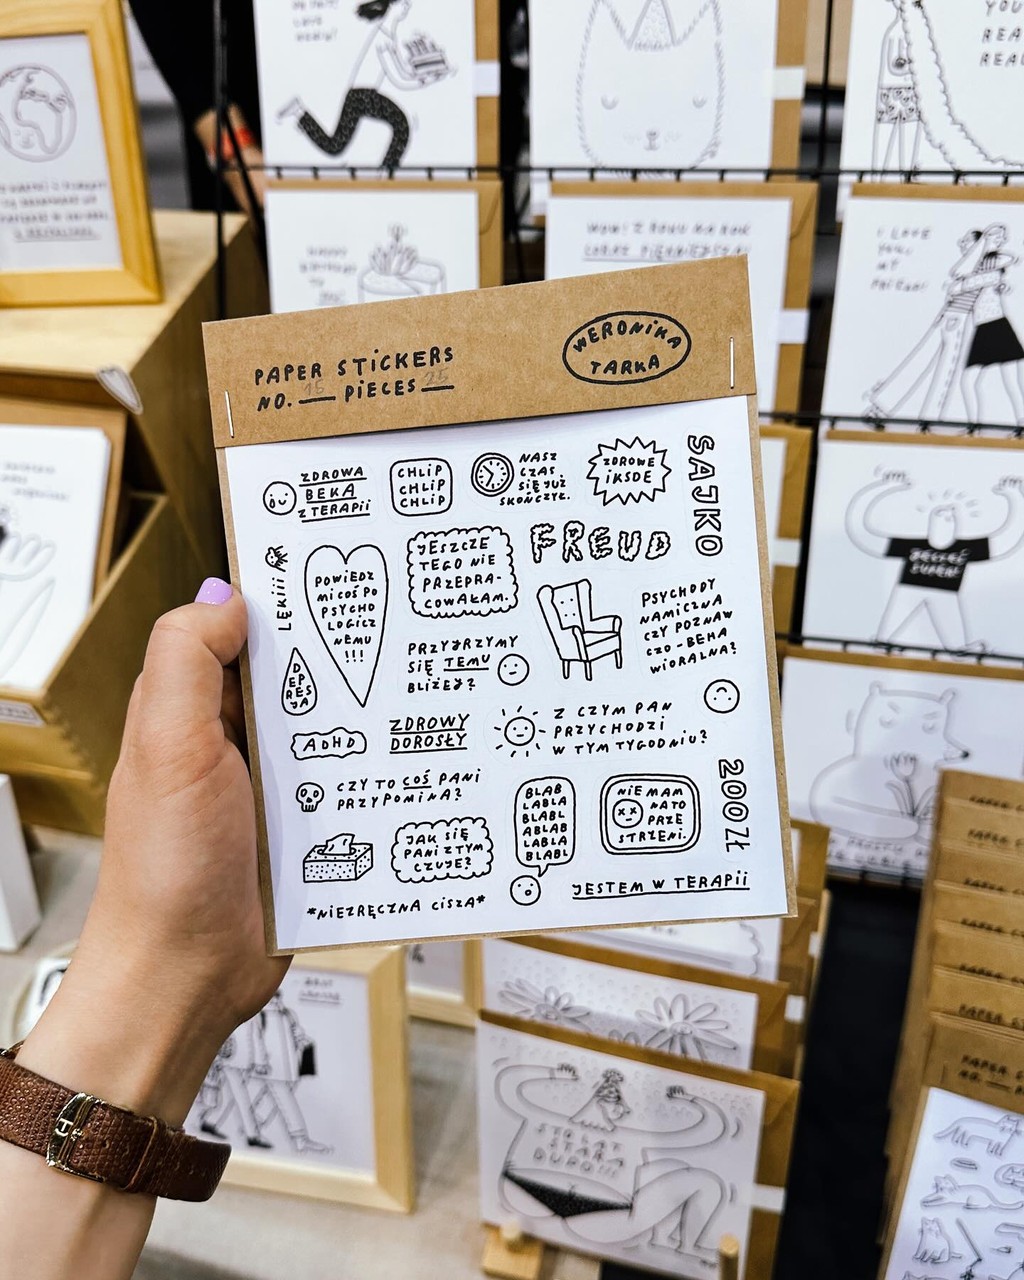 PAPER STICKERS
NO. 15 PIECES 25
WERONIKA
TARKA
ZDROWA
BEKA
Z TERAPII
CHLIP
CHLIP
CHLIP
NASZ
CZAS
SIĘ JUŻ
SKOŃCZYŁ.
ZDROWE
IKSDE
SAJKO
LĘKIII
POWIEDZ
MI COŚ PO
PSYCHO
LOGICZ
NEMU
!!!
JESZCZE
TEGO NIE
PRZEPRA-
COWAŁAM.
FREUD
PSYCHODY
NAMICZNA
CZY POZNAW
CZO-BEHA
WIORALNA?
DEPRESJA
PRZYJRZYMY
SIĘ TEMU
BLIŻEJ?
ADHD
ZDROWY
DOROSŁY
Z CZYM PAN
PRZYCHODZI
W TYM TYGODNIU?
CZY TO COŚ PANI
PRZYPOMINA?
BLAB
LABLA
BLABL
ABLAB
LABLA
BLABL
NIE MAM
NA TO
PRZE
STRZENI.
200ZŁ
JAK SIĘ
PANI Z TYM
CZUJE?
*NIEZRĘCZNA CISZA*
JESTEM W TERAPII
I LOVE
YOU,
MY
FRIEND!
WOW! Z ROKU NA ROK
CORAZ PIĘKNIEJSZA!
JESTEŚ
SUPER!
STO LAT
STARA
DUPO!!!
YOU
REA
REAL